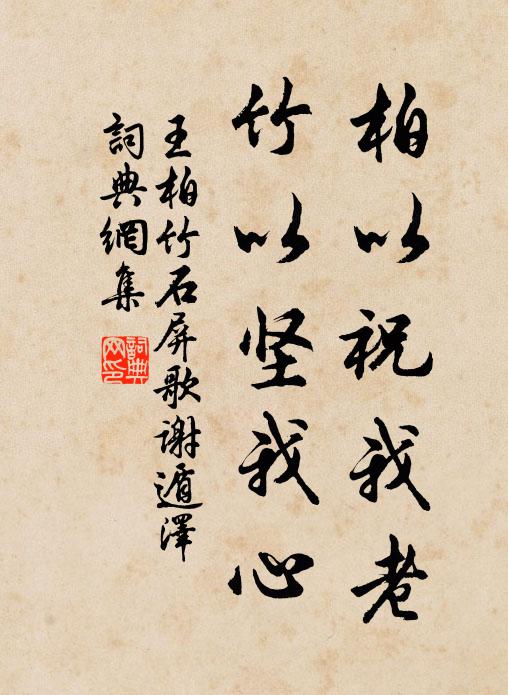 柏以祝我老
竹以坚我心
王柏竹石屏歌谢遁澤
詞典網集
詞典网印